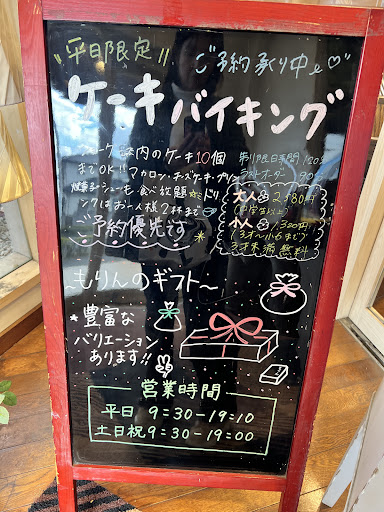 平日限定!!
ご予約承り中♡
ケーキバイキング
ショーケース内のケーキ10個
までOK!!マカロン・チーズケーキ・プリン
焼菓子・シューも食べ放題☆ドリ
ンクはお一人様2杯まで
ご予約優先です
制限時間 120分
ラストオーダー 90分
大人 2,480円
(中学生以上)
小人 1,320円
3才~小6まで
3才未満無料
~もりんのギフト~
*豊富な
バリエーション
あります!!
営業時間
平日 9:30-19:10
土日祝 9:30-19:00